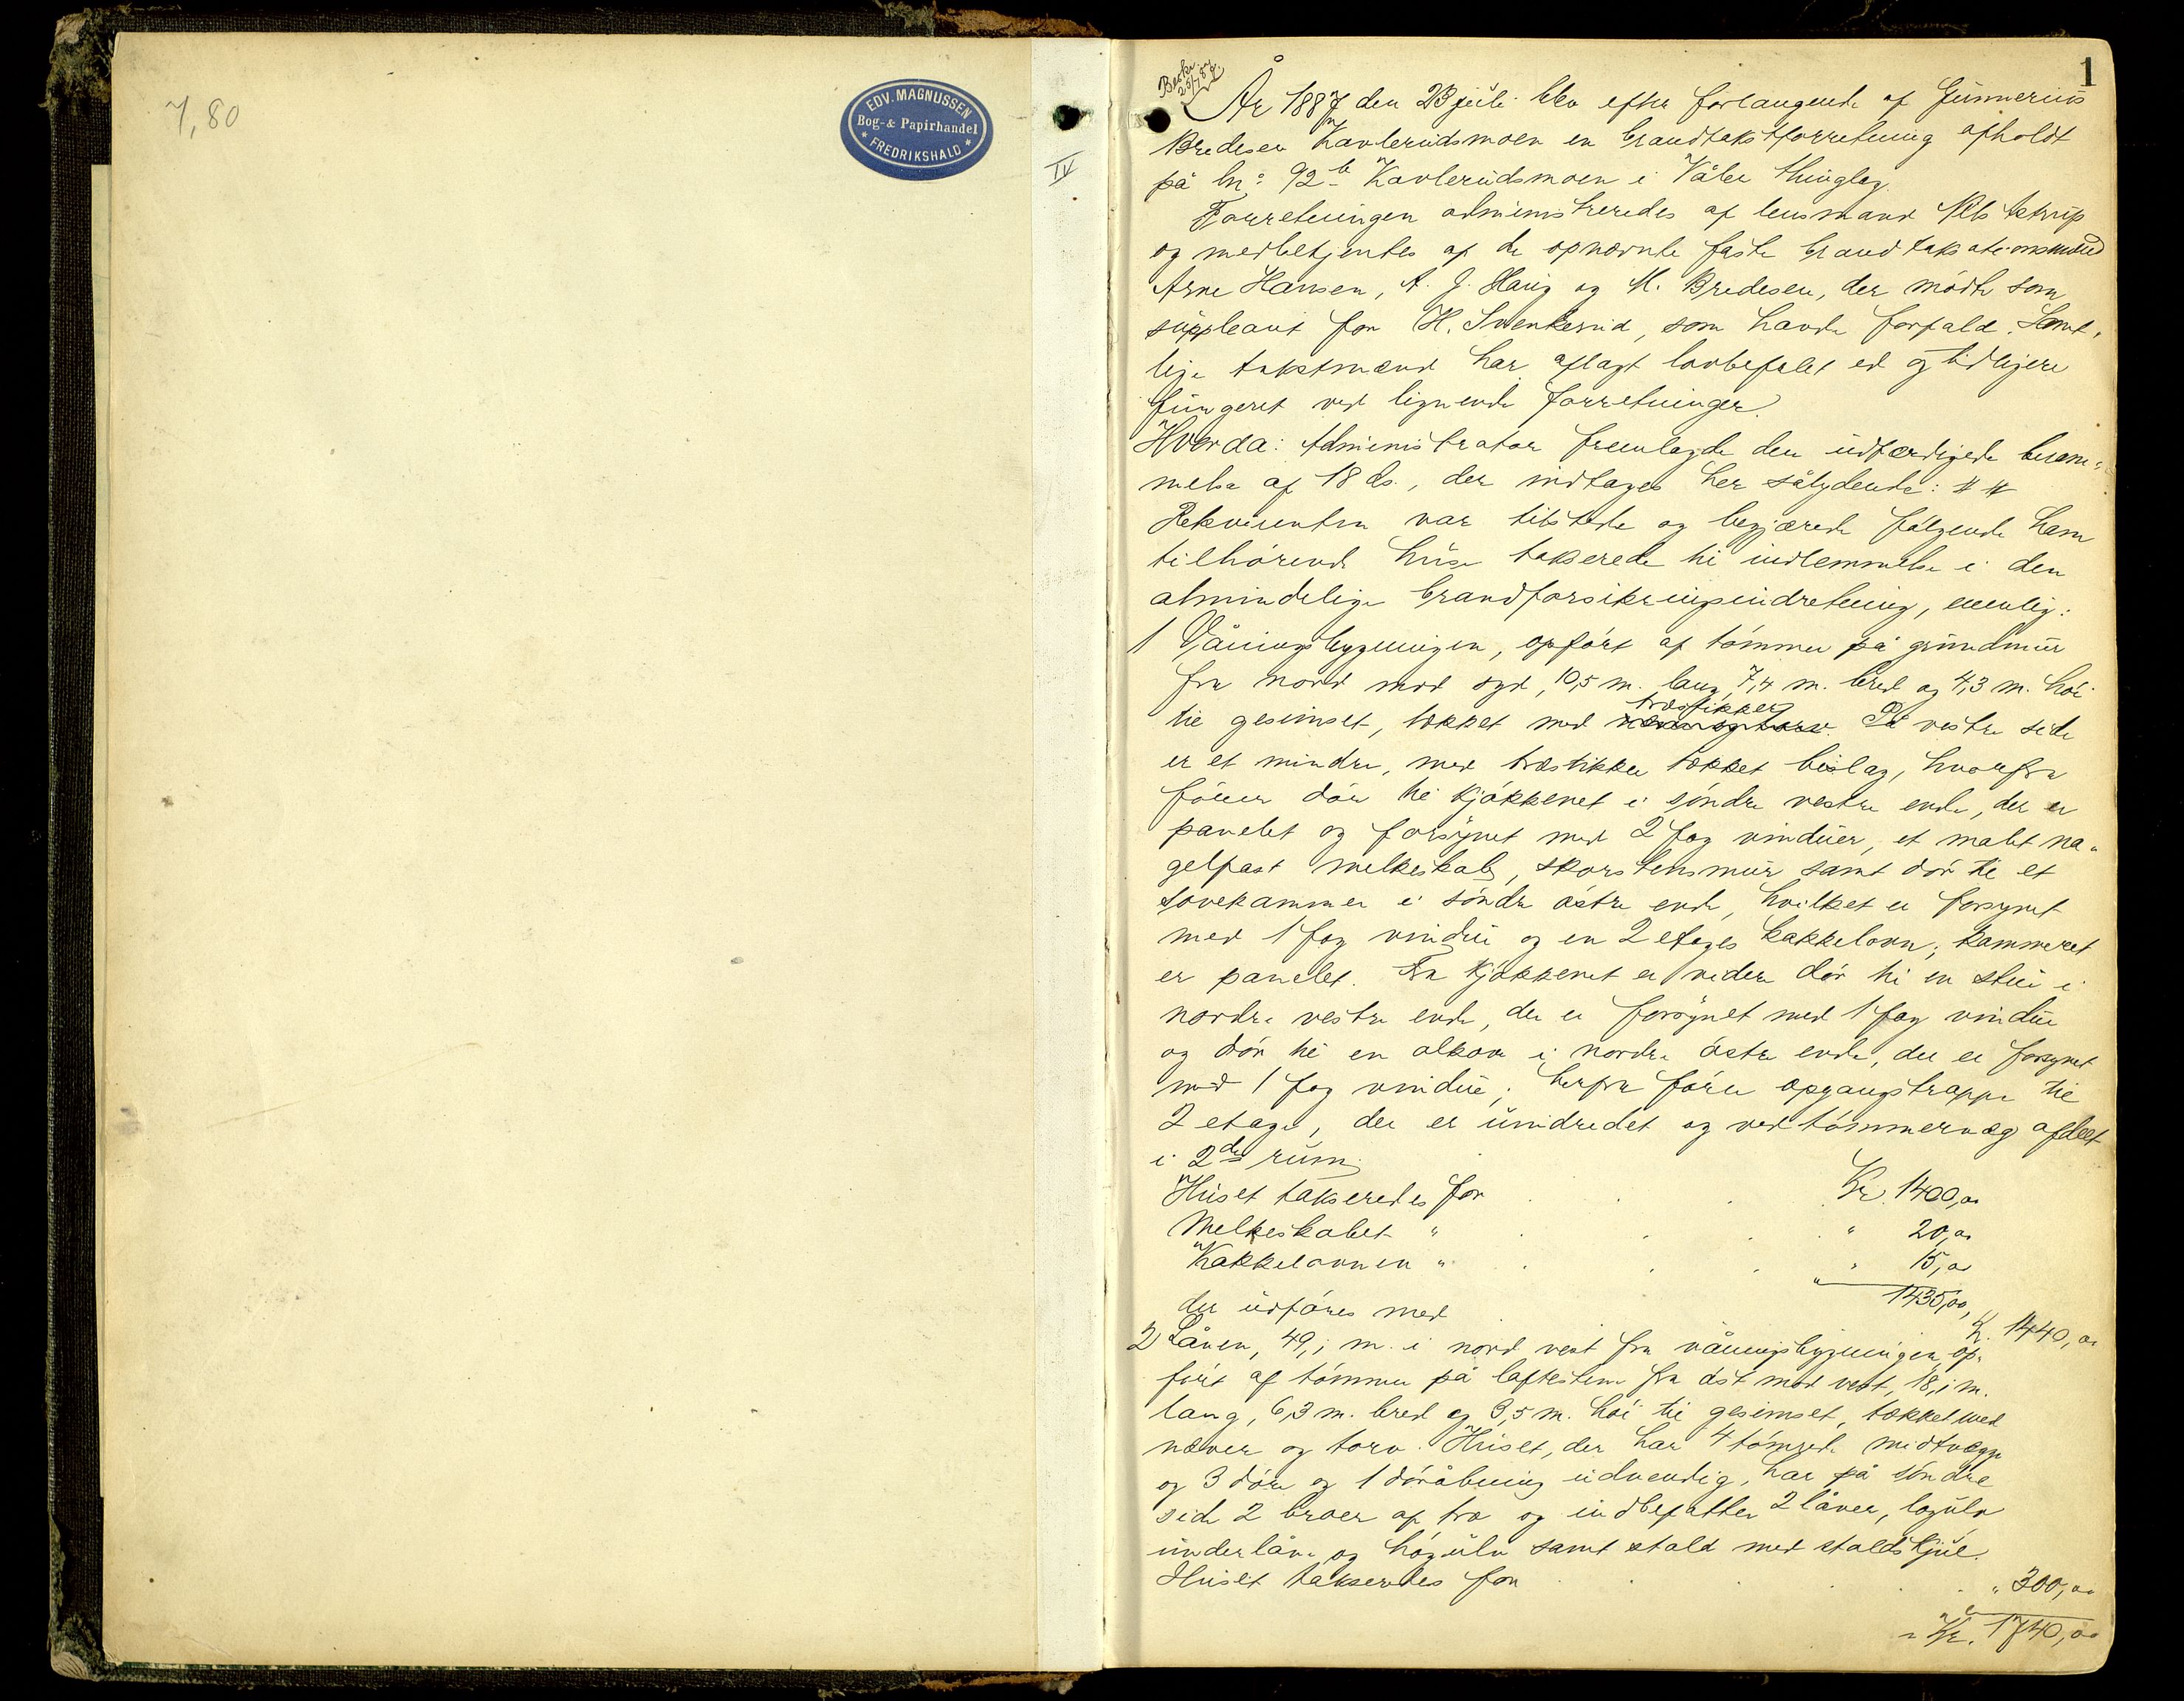 7,80
EDV. MAGNUSSEN
Bog- & Papirhandel
* FREDRIKSHALD *
IV
1
Beskr.
25/7 87.
År 1887 den 23 juli blev efter forlangende af Gunnerius
Bredesen Kavlerudsmoen en brandtakstforretning afholdt
på bn: 92 b Kavlerudsmoen i Våler thinglag.
Forretningen administreredes af lensmand
og medbetjentes af de opnævnte faste brandtaksationsmænd
Arne Hansen, A. J. Haug og M. Bredesen, der mødte som
suppleant for H. Svenkerud, som havde forfald. Samt-
lige takstmænd har aflagt lovbefalet ed og tidligere
fungeret ved lignende forretninger.
Hvorda: Administrator fremlagde den udfærdigede beram-
melse af 18 ds., der indtages her sålydende: # #
Rekvirenten var tilstede og begjærede følgende ham
tilhørende huse takserede til indlemmelse i den
almindelige brandforsikringsindretning, nemlig:
1 Våningsbygningen, opført af tømmer på grundmur
fra nord mod syd, 10,5 m. lang, 7,4 m. bred og 4,3 m. høi
træstikker
til gesimset, tækket med næver og torv. På vestre side
er et mindre, med træstikker tækket bislag, hvorfra
fører dør til kjøkkenet i søndre vestre ende, der er
panelet og forsynet med 2 fag vinduer, et malt na-
gelfast melkeskab, skorstensmur samt dør til et
sovekammer i søndre østre ende, hvilket er forsynet
med 1 fag vindu og en 2 etages kakkelovn; kammeret
er panelet. Fra kjøkkenet er videre dør til en stue i
nordre vestre ende, der er forsynet med 1 fag vindue
og dør til en alkove i nordre østre ende, der er forsynet
med 1 fag vindue; herfra fører opgangstrappe til
2 etage, der er uindredet og ved tømmervæg afdelt
i 2de rum.
Huset takseredes for . . . Kr. 1400,00
Melkeskabet " . . . " 20,00
Kakkelovnen " . . . " 15,00
1435,00,
der udføres med . Kr. 1440,00
2 Låven, 49,1 m. i nord vest fra våningsbygningen, op-
ført af tømmer på laftestene fra øst mod vest, 18,1 m.
lang, 6,3 m. bred og 3,5 m. høi til gesimset, tækket med
næver og torv. Huset, der har 4 tømrede midtvægge
og 3 døre og 1 døråbning udvendig, har på søndre
side 2 broer af træ og indbefatter 2 låver, logulv
underlåve og høgulv samt stald med staldskjul.
Huset takseredes for . . . " 300,00
Kr. 1740,00